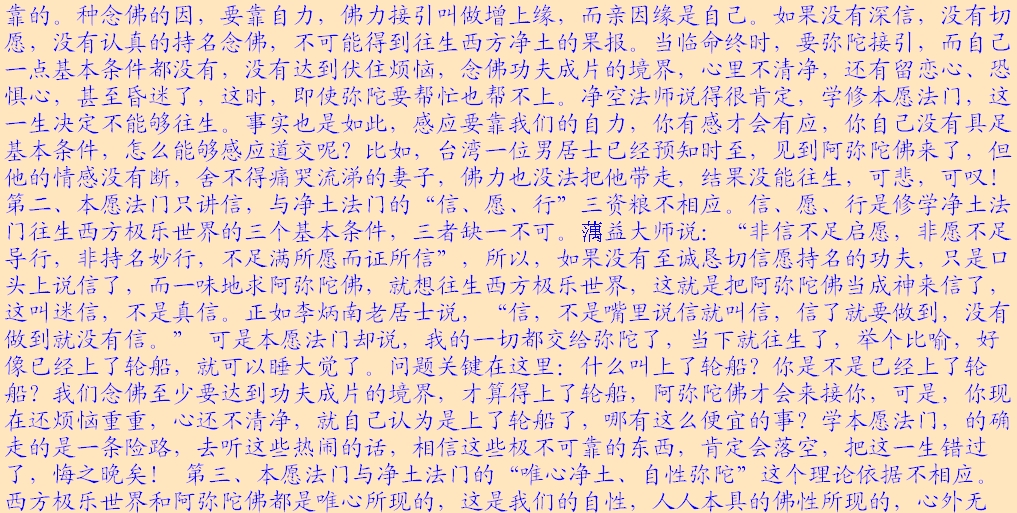 靠的。种念佛的因，要靠自力，佛力接引叫做增上缘，而亲因缘是自己。如果没有深信，没有切
愿，没有认真的持名念佛，不可能得到往生西方净土的果报。当临命终时，要弥陀接引，而自己
一点基本条件都没有，没有达到伏住烦恼，念佛功夫成片的境界，心里不清净，还有留恋心、恐
惧心，甚至昏迷了，这时，即使弥陀要帮忙也帮不上。净空法师说得很肯定，学修本愿法门，这
一生决定不能够往生。事实也是如此，感应要靠我们的自力，你有感才会有应，你自己没有具足
基本条件，怎么能够感应道交呢？比如，台湾一位男居士已经预知时至，见到阿弥陀佛来了，但
他的情感没有断，舍不得痛哭流涕的妻子，佛力也没法把他带走，结果没能往生，可悲，可叹！
第二、本愿法门只讲信，与净土法门的“信、愿、行”三资粮不相应。信、愿、行是修学净土法
门往生西方极乐世界的三个基本条件，三者缺一不可。蕅益大师说：“非信不足启愿，非愿不足
导行，非持名妙行，不足满所愿而证所信”，所以，如果没有至诚恳切信愿持名的功夫，只是口
头上说信了，而一味地求阿弥陀佛，就想往生西方极乐世界，这就是把阿弥陀佛当成神来信了，
这叫迷信，不是真信。正如李炳南老居士说，“信，不是嘴里说信就叫信，信了就要做到，没有
做到就没有信。” 可是本愿法门却说，我的一切都交给弥陀了，当下就往生了，举个比喻，好
像已经上了轮船，就可以睡大觉了。问题关键在这里：什么叫上了轮船？你是不是已经上了轮
船？我们念佛至少要达到功夫成片的境界，才算得上了轮船，阿弥陀佛才会来接你，可是，你现
在还烦恼重重，心还不清净，就自己认为是上了轮船了，哪有这么便宜的事？学本愿法门，的确
走的是一条险路，去听这些热闹的话，相信这些极不可靠的东西，肯定会落空，把这一生错过
了，悔之晚矣！ 第三、本愿法门与净土法门的“唯心净土、自性弥陀”这个理论依据不相应。
西方极乐世界和阿弥陀佛都是唯心所现的，这是我们的自性，人人本具的佛性所现的，心外无